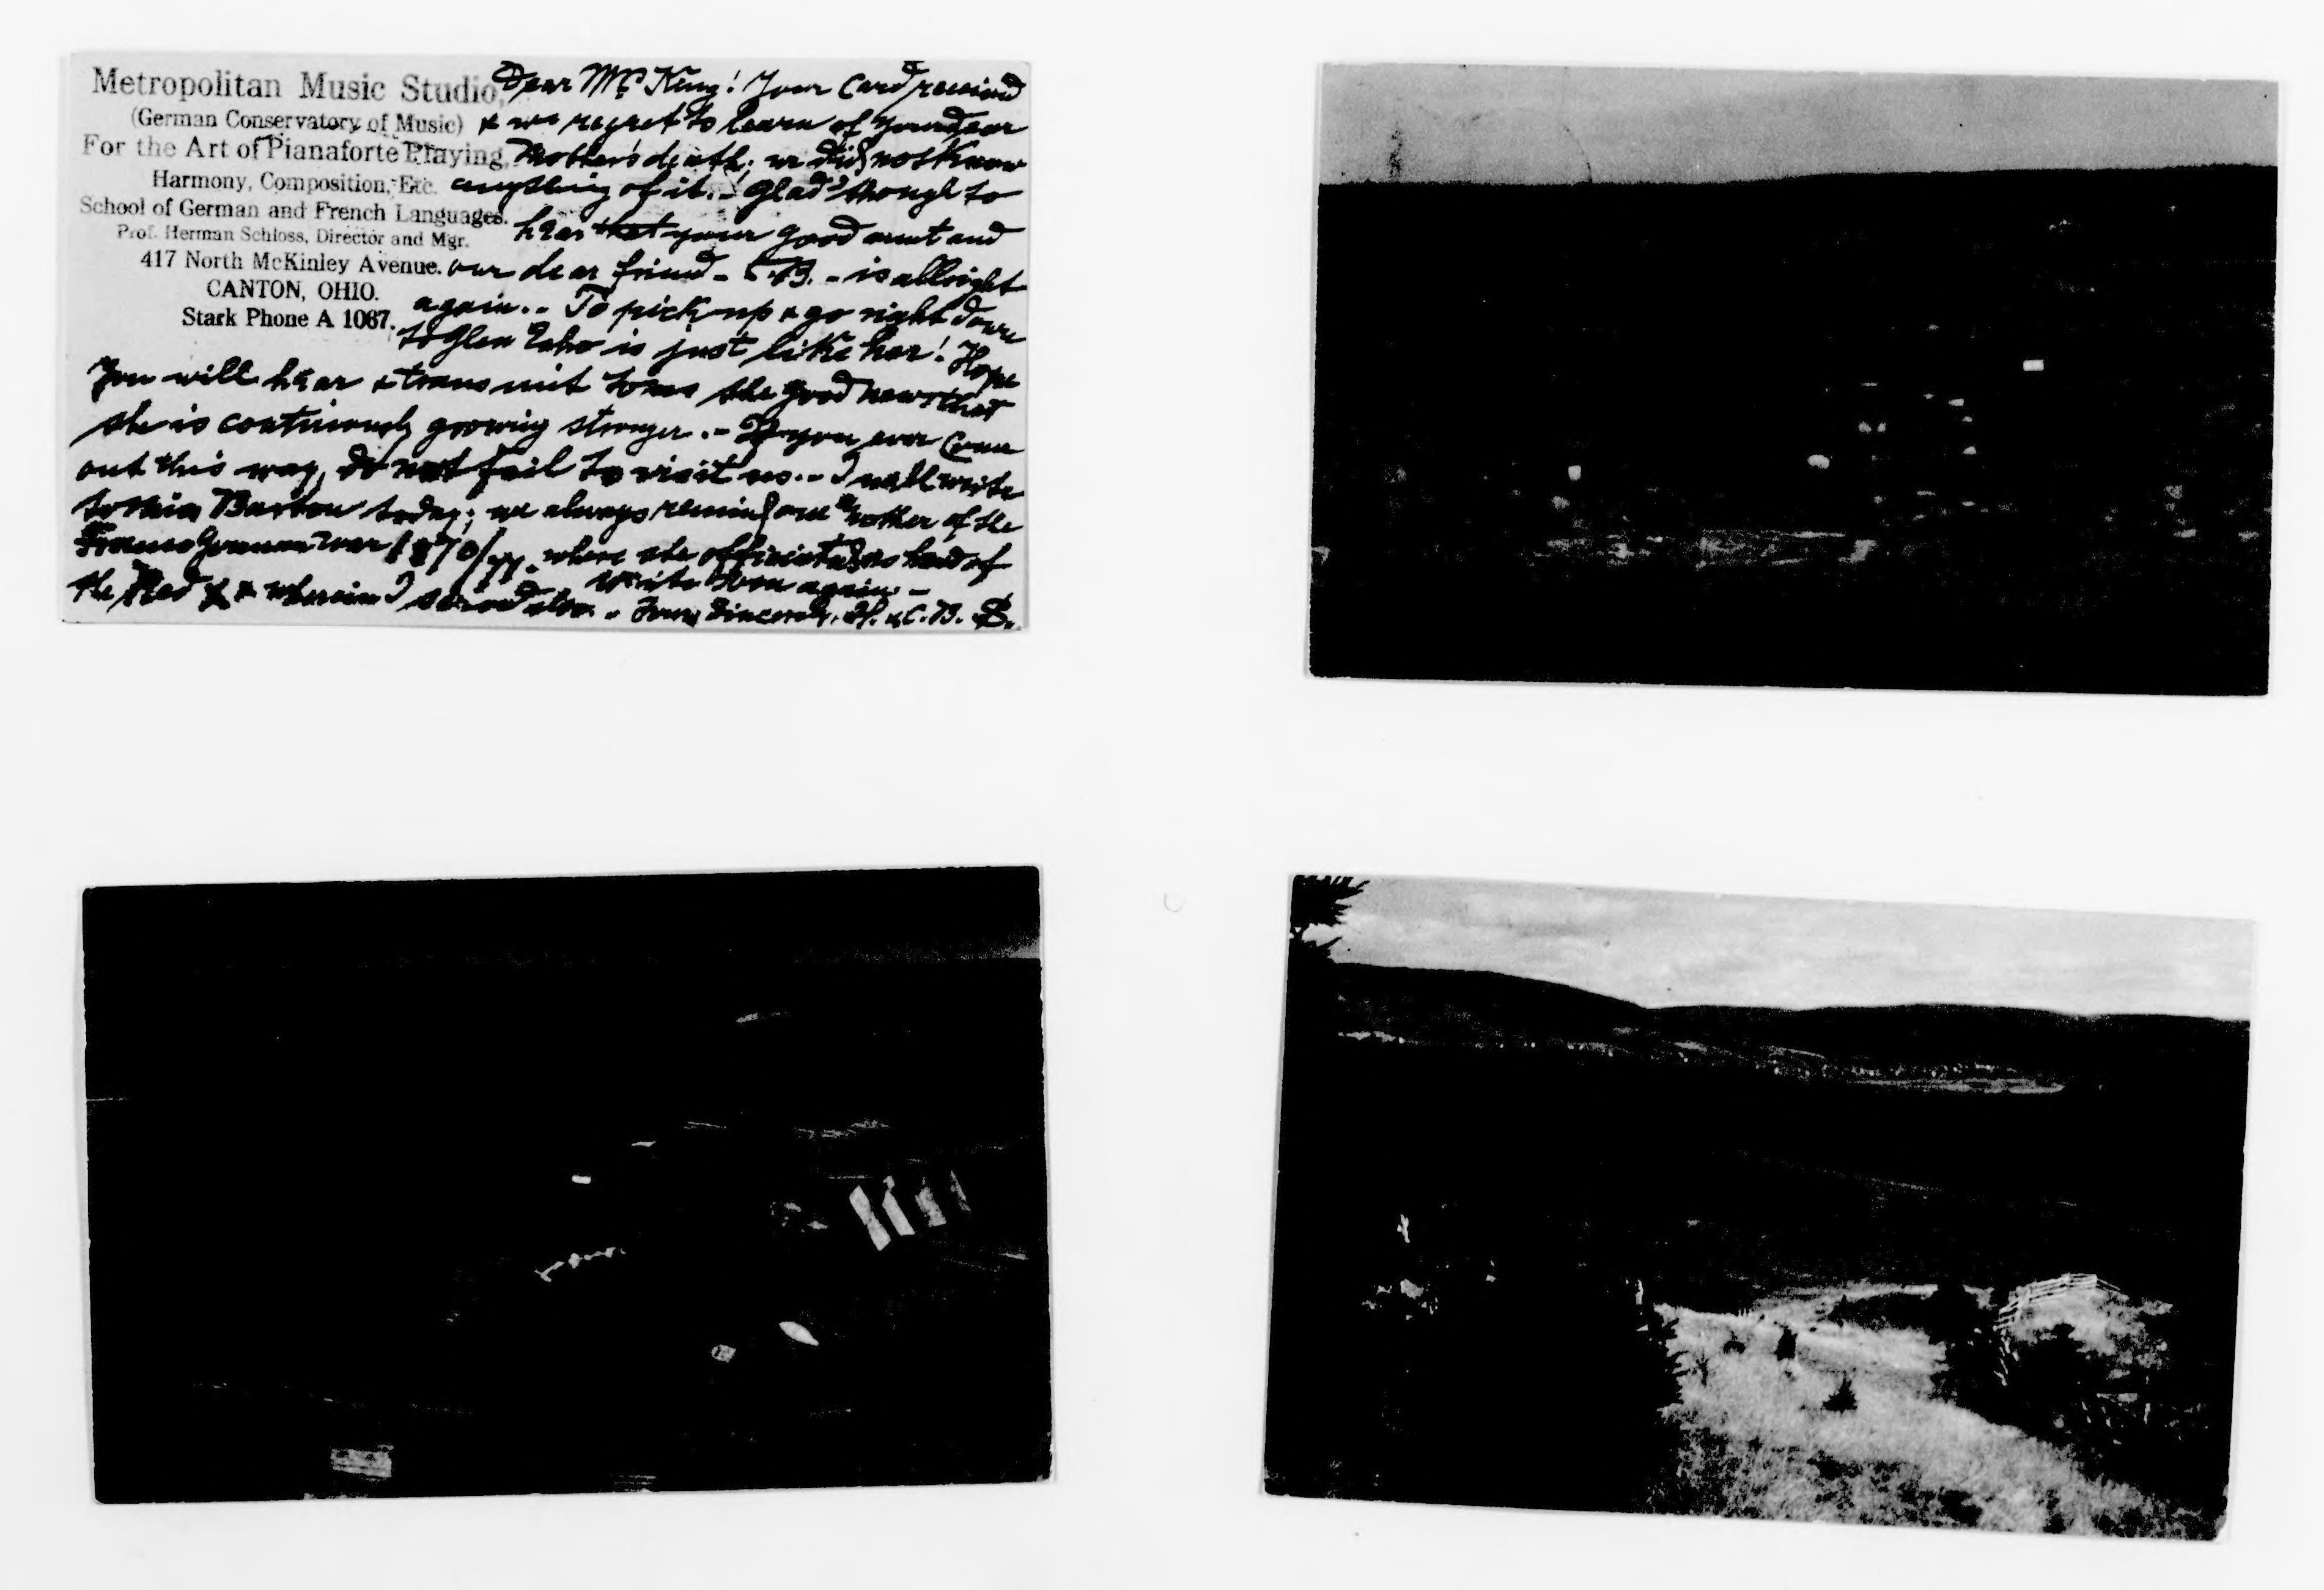 Metropolitan Music Studio,
(German Conservatory of Music)
For the Art of Pianaforte Playing,
Harmony, Composition, Etc.
School of German and French Languages.
Prof. Herman Schloss, Director and Mgr.
417 North McKinley Avenue.
CANTON, OHIO.
Stark Phone A 1067.
Dear Mr. King! Your Card received
& we regret to learn of your dear
Mother's death; we did not know
anything of it.- Glad though to
hear that your good aunt and
our dear friend - C.B. - is allright
again.- To pick up & go right down
to Glen Echo is just like her! Hope
you will hear & transmit to us the good news that
she is continously growing stronger.- If you ever come
out this way, do not fail to visit us.- I will write
to Miss Barton today; we always remind one another of the
Franco German War 1870/71. where she officiated as head of
the Red X & wherein I served also.- Write soon again.-
Yours Sincerely, H. & C. B. S.